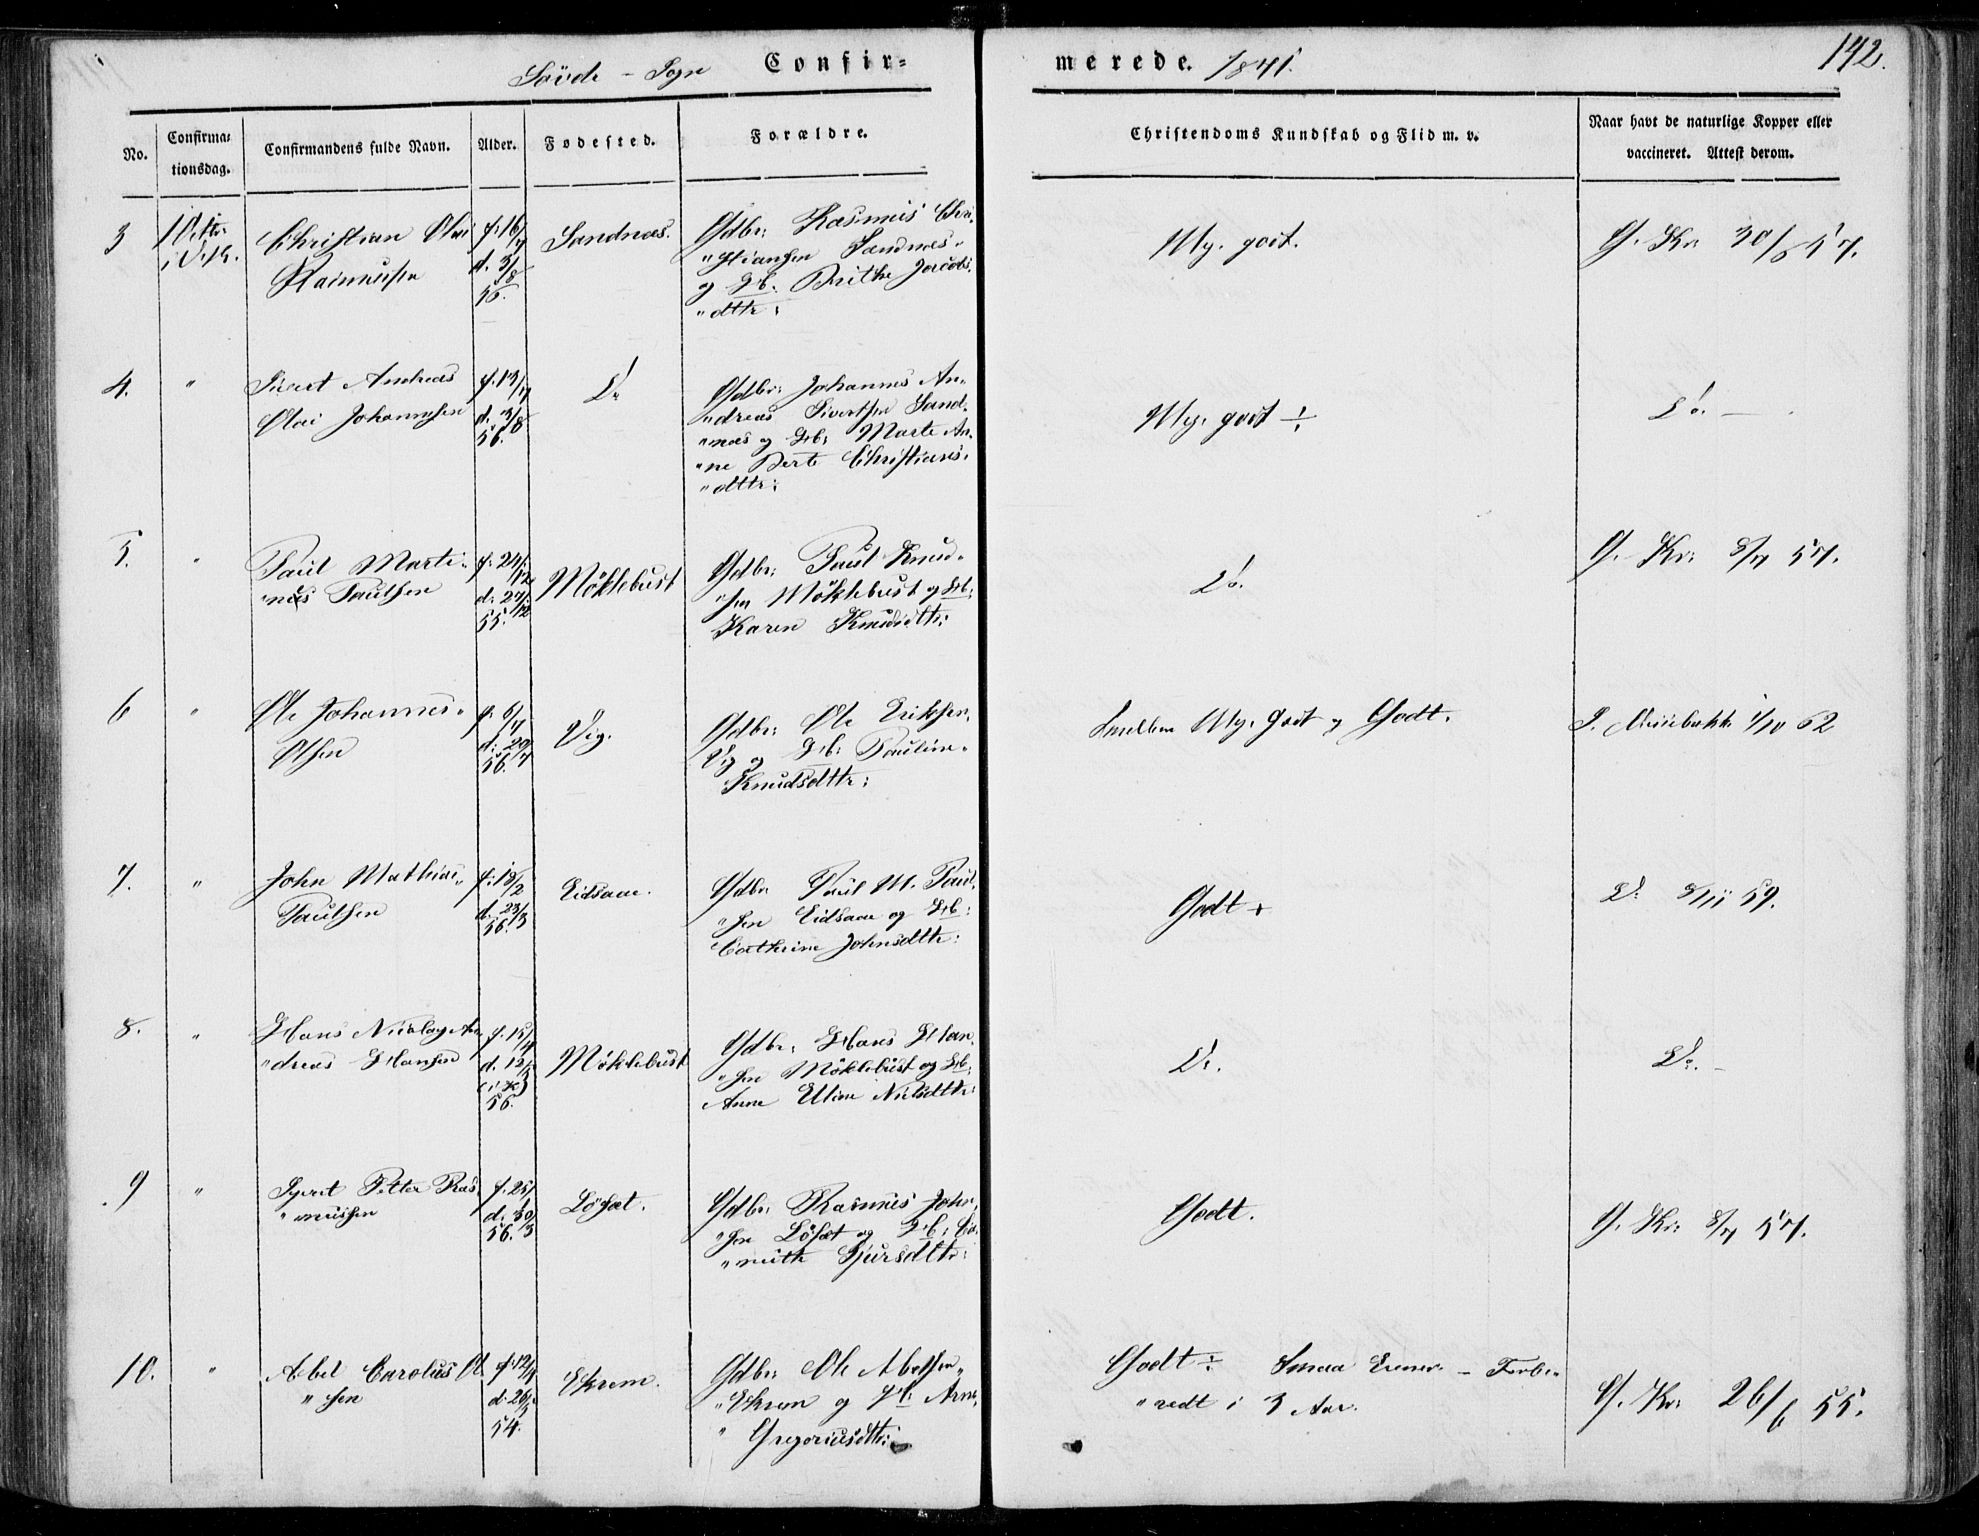 Søvde - Sogn Confir-
merede. 1871.
142.
No.
Confirma-
tionsdag.
Confirmandens fulde Navn.
Alder.
Fødested.
Forældre.
Christendoms Kundskab og Flid m. v.
Naar havt de naturlige Kopper eller
vaccineret. Attest derom.
3
Christian Olai
Rasmussen
f. 16/7
d. 3/8
56.
Sandnæs.
Gdbr: Rasmus Chri-
"stiansen Sandnæs
og Hb. Brithe Jacobs-
"dttr:
My. godt.
G. Kr. 30/6 57.
4.
"
Sivert Andreas
Olai Johannessen
f. 13/7
d. 3/8
56.
Do
Gdbr: Johannes An-
"dreas Sivertsen Sand-
"næs og Hb: Marte An-
"ne Berte Christians-
"dttr:
My. godt ÷
Do. —
5.
"
Paul Marti-
"nus Paulsen
f. 24/12
d. 27/12
55.
Möklebust
Gdbr: Paul Knud-
"sen Möklebust og Hb:
Karen Knudsdttr:
Do.
G. Kr: 8/7 57.
6
"
Ole Johannes
Olsen
f. 6/7
d. 20/7
56.
Vig.
Gdbr: Ole Eriksen
Vig og Hb: Pauline
Knudsdttr:
Imellem My. godt og Godt.
1/10 62
7.
"
John Mathias
Paulsen
f. 18/2
d. 23/3
56.
Eidsaae.
Gdbr Paul M. Paul-
"sen Eidsaae og Hb:
Cathrine Johnsdttr:
Godt +
Do 8/11 59.
8.
"
Hans Nicolay An-
"dreas Hansen
f. 15/4
56.
Möklebust
Gdbr: Hans Han-
"sen Möklebust og Hb:
Anne Eline Nilsdttr:
Do.
Do. -
9
"
Sivert Petter Ras-
"mussen
d. 30/3
56.
Löset.
Gdbr: Rasmus John-
"sen Löset og Hb:
Sjursdttr:
Godt.
G. Kr: 8/7 57.
10.
"
Abel Carolus Ol-
"sen
54.
Ekrem.
Gdbr: Ole Abelsen
"Ekrem og Hb: Arne
" Gregoriusdttr:
Godt ÷ Smaa Evner - Forbe-
"redt i 3 Aar.
G. Kr: 26/6 55.